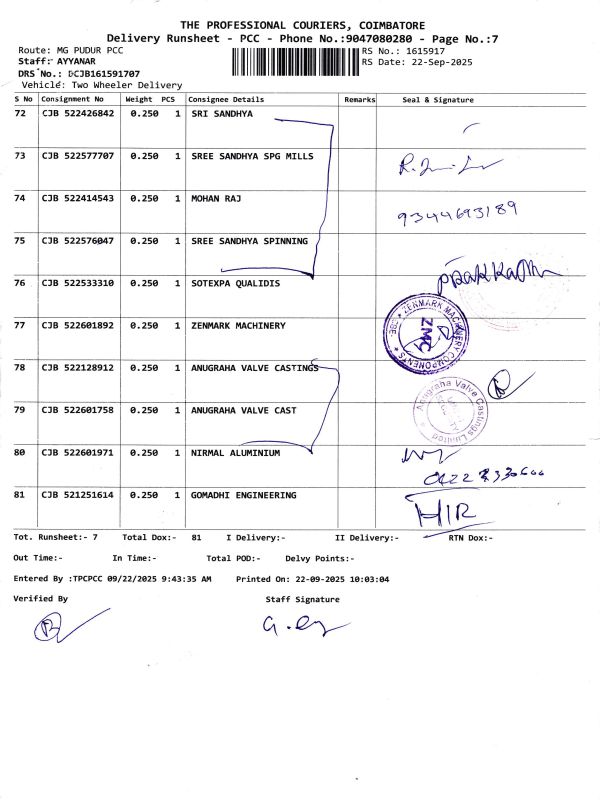 THE PROFESSIONAL COURIERS, COIMBATORE
Delivery Runsheet - PCC - Phone No.:9047080280 - Page No.:7
Route: MG PUDUR PCC RS No.: 1615917
Staff: AYYANAR RS Date: 22-Sep-2025
DRS No.: DCJB161591707
Vehicle: Two Wheeler Delivery
S No Consignment No Weight PCS Consignee Details Remarks Seal & Signature
72 CJB 522426842 0.250 1 SRI SANDHYA
73 CJB 522577707 0.250 1 SREE SANDHYA SPG MILLS
74 CJB 522414543 0.250 1 MOHAN RAJ 9344693189
75 CJB 522576047 0.250 1 SREE SANDHYA SPINNING
76 CJB 522533310 0.250 1 SOTEXPA QUALIDIS
77 CJB 522601892 0.250 1 ZENMARK MACHINERY ZENMARK MACHINERY COMPONENTS CBE ZMC
78 CJB 522128912 0.250 1 ANUGRAHA VALVE CASTINGS
79 CJB 522601758 0.250 1 ANUGRAHA VALVE CAST Anugraha Valve Castings Limited
80 CJB 522601971 0.250 1 NIRMAL ALUMINIUM
81 CJB 521251614 0.250 1 GOMADHI ENGINEERING HIR
Tot. Runsheet:- 7 Total Dox:- 81 I Delivery:- II Delivery:- RTN Dox:-
Out Time:- In Time:- Total POD:- Delvy Points:-
Entered By :TPCPCC 09/22/2025 9:43:35 AM Printed On: 22-09-2025 10:03:04
Verified By Staff Signature